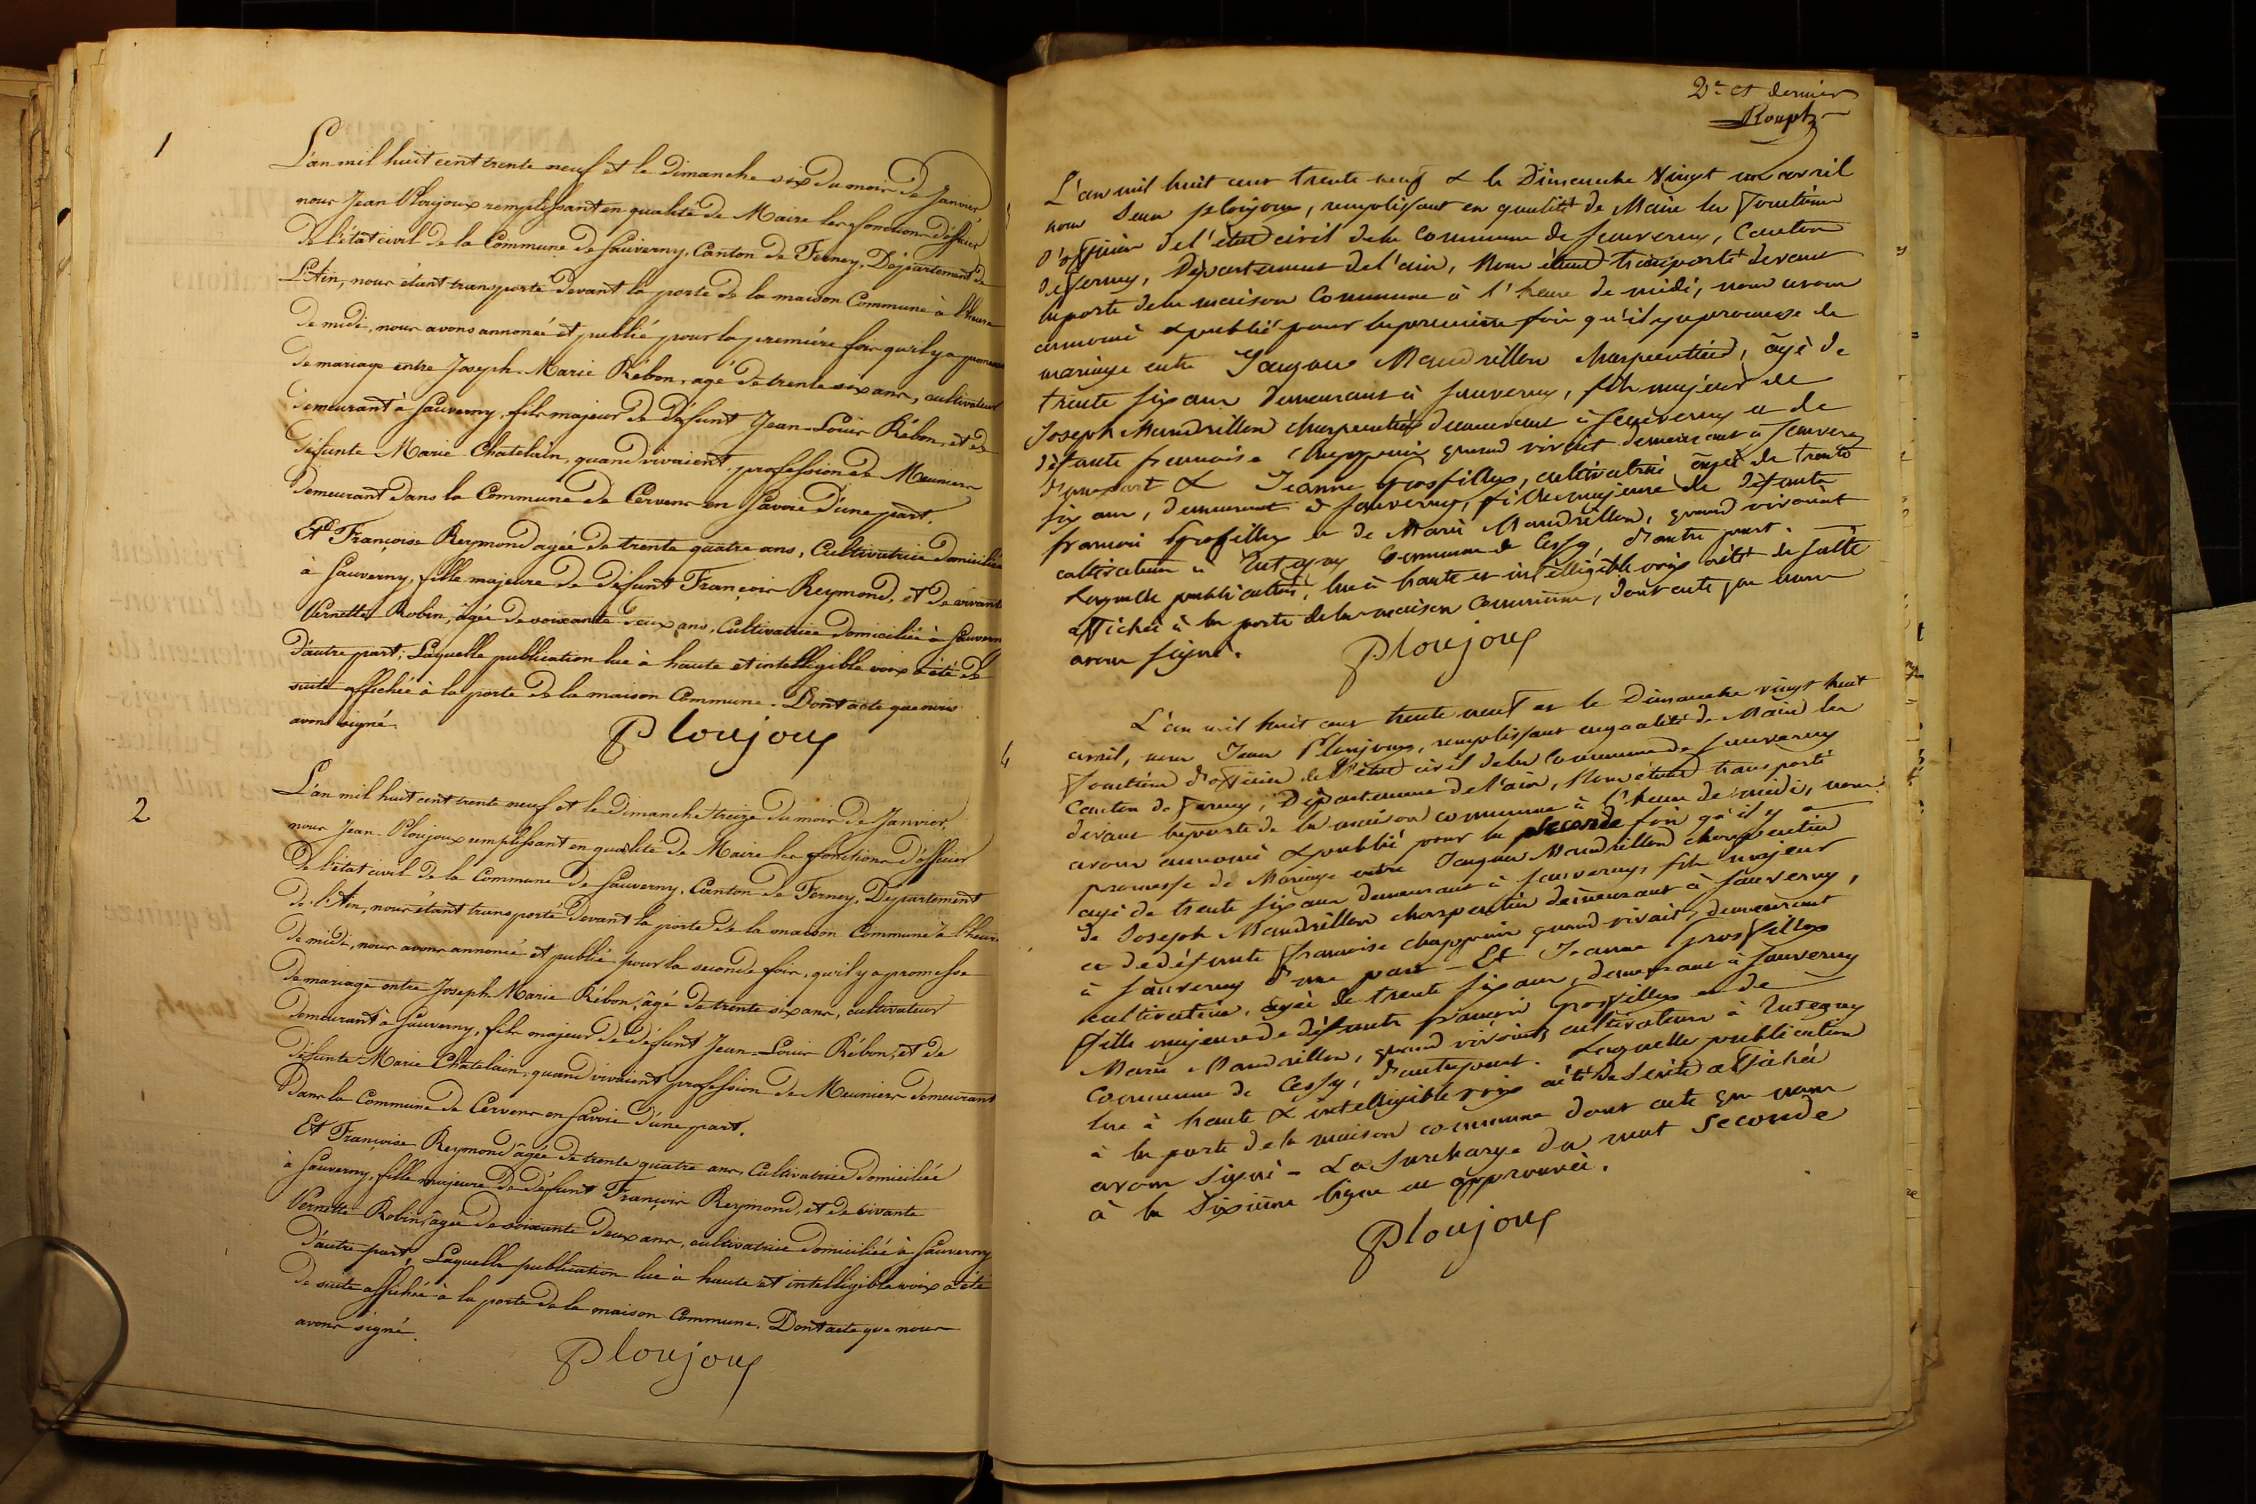 1
L'an mil huit cent trente neuf et le dimanche six du mois de Janvier
nous Jean Ploujoux remplissant en qualité de Maire les fonctions d'officier
de l'état civil de la Commune de Sauverny, Canton de Ferney, Département de
L'Ain, nous étant transporté devant la porte de la maison Commune à l'heure
de midi, nous avons annoncé et publié pour la première fois qu'il y a promesse
de mariage entre Joseph-Marie Rébon, agé de trente six ans, cultivateur
demeurant à Sauverny, fils majeur de défunt Jean-Louis Rébon, et de
défunte Marie Chatelain, quand vivaient, profession de Meuniers
demeurant dans la Commune de Cervens en Savoie d'une part.
Et Françoise Reymond agée de trente quatre ans, Cultivatrice domiciliée
à Sauverny, fille majeure de défunt François Reymond, et de vivante
Vernette Robin, âgée de soixante deux ans, Cultivatrice domiciliée à Sauverny
d'autre part; Laquelle publication lue à haute et intelligible voix a été de
suite affichée à la porte de la maison Commune. Dont acte que nous
avons signé.
Ploujoux
2
L'an mil huit cent trente neuf et le dimanche treize du mois de Janvier,
nous Jean-Ploujoux remplissant en qualité de Maire les fonctions d'officier
de l'état civil de la Commune de Sauverny, Canton de Ferney, Département
de l'Ain, nous étant transporté devant la porte de la maison Commune à l'heure
de midi, nous avons annoncé et publié pour la seconde fois, qu'il y a promesse
de mariage entre Joseph Marie Rébon, âgé de trente six ans, cultivateur
demeurant à Sauverny, fils majeur de défunt Jean-Louis Rébon, et de
défunte Marie Chatelain, quand vivaient profession de Meuniers demeurant
dans la Commune de Cervens en Savoie d'une part.
Et Françoise Reymond âgée de trente quatre ans, Cultivatrice domiciliée
à Sauverny, fille majeure de défunt François Reymond, et de vivante
Vernette Robin, âgée de soixante deux ans, cultivatrice domiciliée à Sauverny
d'autre part, Laquelle publication lue à haute et intelligible voix a été
de suite affichée à la porte de la maison Commune. Dont acte que nous
avons signé.
Ploujoux
2e et dernier
Roupt
L'an mil huit cent trente neuf & le Dimanche Vingt un avril
nous Jean Ploujoux, remplissant en qualité de Maire les fonctions
d'officier de l'état civil de la Commune de Sauverny, Canton
de Ferney, Département de l'ain, Nous étant transporté devant
la porte de la maison Commune à l'heure de midi, nous avons
annoncé & publié pour la première fois qu'il y a promesse de
mariage entre Jaques Mandrillon charpentier, âgé de
trente six ans demeurant à Sauverny, fils majeur de
Joseph Mandrillon charpentier demeurant à Sauverny et de
défunte francoise Chappuis quand vivait demeurant à Sauverny
d'une part & Jeanne Grosfilley, cultivatrice âgée de trente
six ans, demeurant à Sauverny, fille majeure de défunts
francois Grosfilley et de Marie Mandrillon, quand vivoient
cultivateurs à Tutegny Commune de Cessy, d'autre part.
Laquelle publication, lue à haute et intelligible voix a été de suite
affichée à la porte de la maison Commune, dont acte que nous
avons signé.
Ploujoux
4
L'an mil huit cent trente neuf et le Dimanche vingt huit
avril, nous Jean Ploujoux, remplissant en qualité de Maire les
fonctions d'officier de l'état civil de la Commune de Sauverny
Canton de Ferney, Département de l'ain, Nous étant transporté
devant la porte de la maison commune à l'heure de midi, nous
avons annoncé & publié pour la seconde fois qu'il y a
promesse de Mariage entre Jaques Mandrillon charpentier
agé de trente six ans demeurant à Sauverny, fils majeur
de Joseph Mandrillon charpentier demeurant à Sauverny,
et de défunte francoise Chappuis quand vivait, demeurant
à Sauverny d'une part - Et Jeanne Grosfilley
cultivatrice, âgée de trente six ans, demeurant à Sauverny
fille majeure de défunts francois Grosfilley et de
Marie Mandrillon, quand vivoient cultivateurs à Tutegny
Commune de Cessy, d'autre part. Laquelle publication
lue à haute & intelligible voix a été de suite affichée
à la porte de la maison commune dont acte que nous
avons signé - La Surcharge du mot Seconde
à la Sixième ligne est approuvée.
Ploujoux